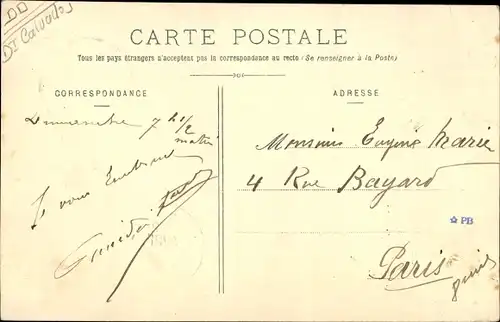 DD
Dt Calvados
CARTE POSTALE
Tous les pays étrangers n'acceptent pas la correspondance au recto (Se renseigner à la Poste)
CORRESPONDANCE
ADRESSE
7 h 1/2
matin
Je vous
Monsieur Eugène Marie
4 Rue Bayard
PB
Paris